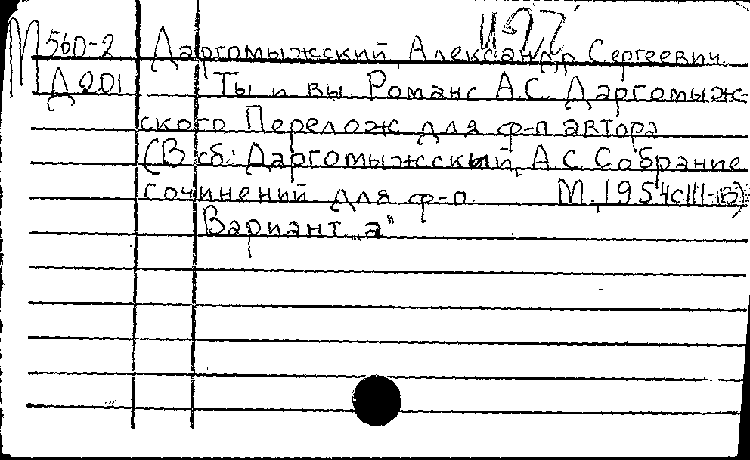 М 560-2 Даргомыжский, Александр Сергеевич.
Д 201 Ты и вы. Романс А.С. Даргомыж-
ского. Перелож. для ф-п. автора
(В сб: Даргомыжский, А.С. Собрание
сочинений для ф-п. М., 1954, с 111-113)
Вариант „а"